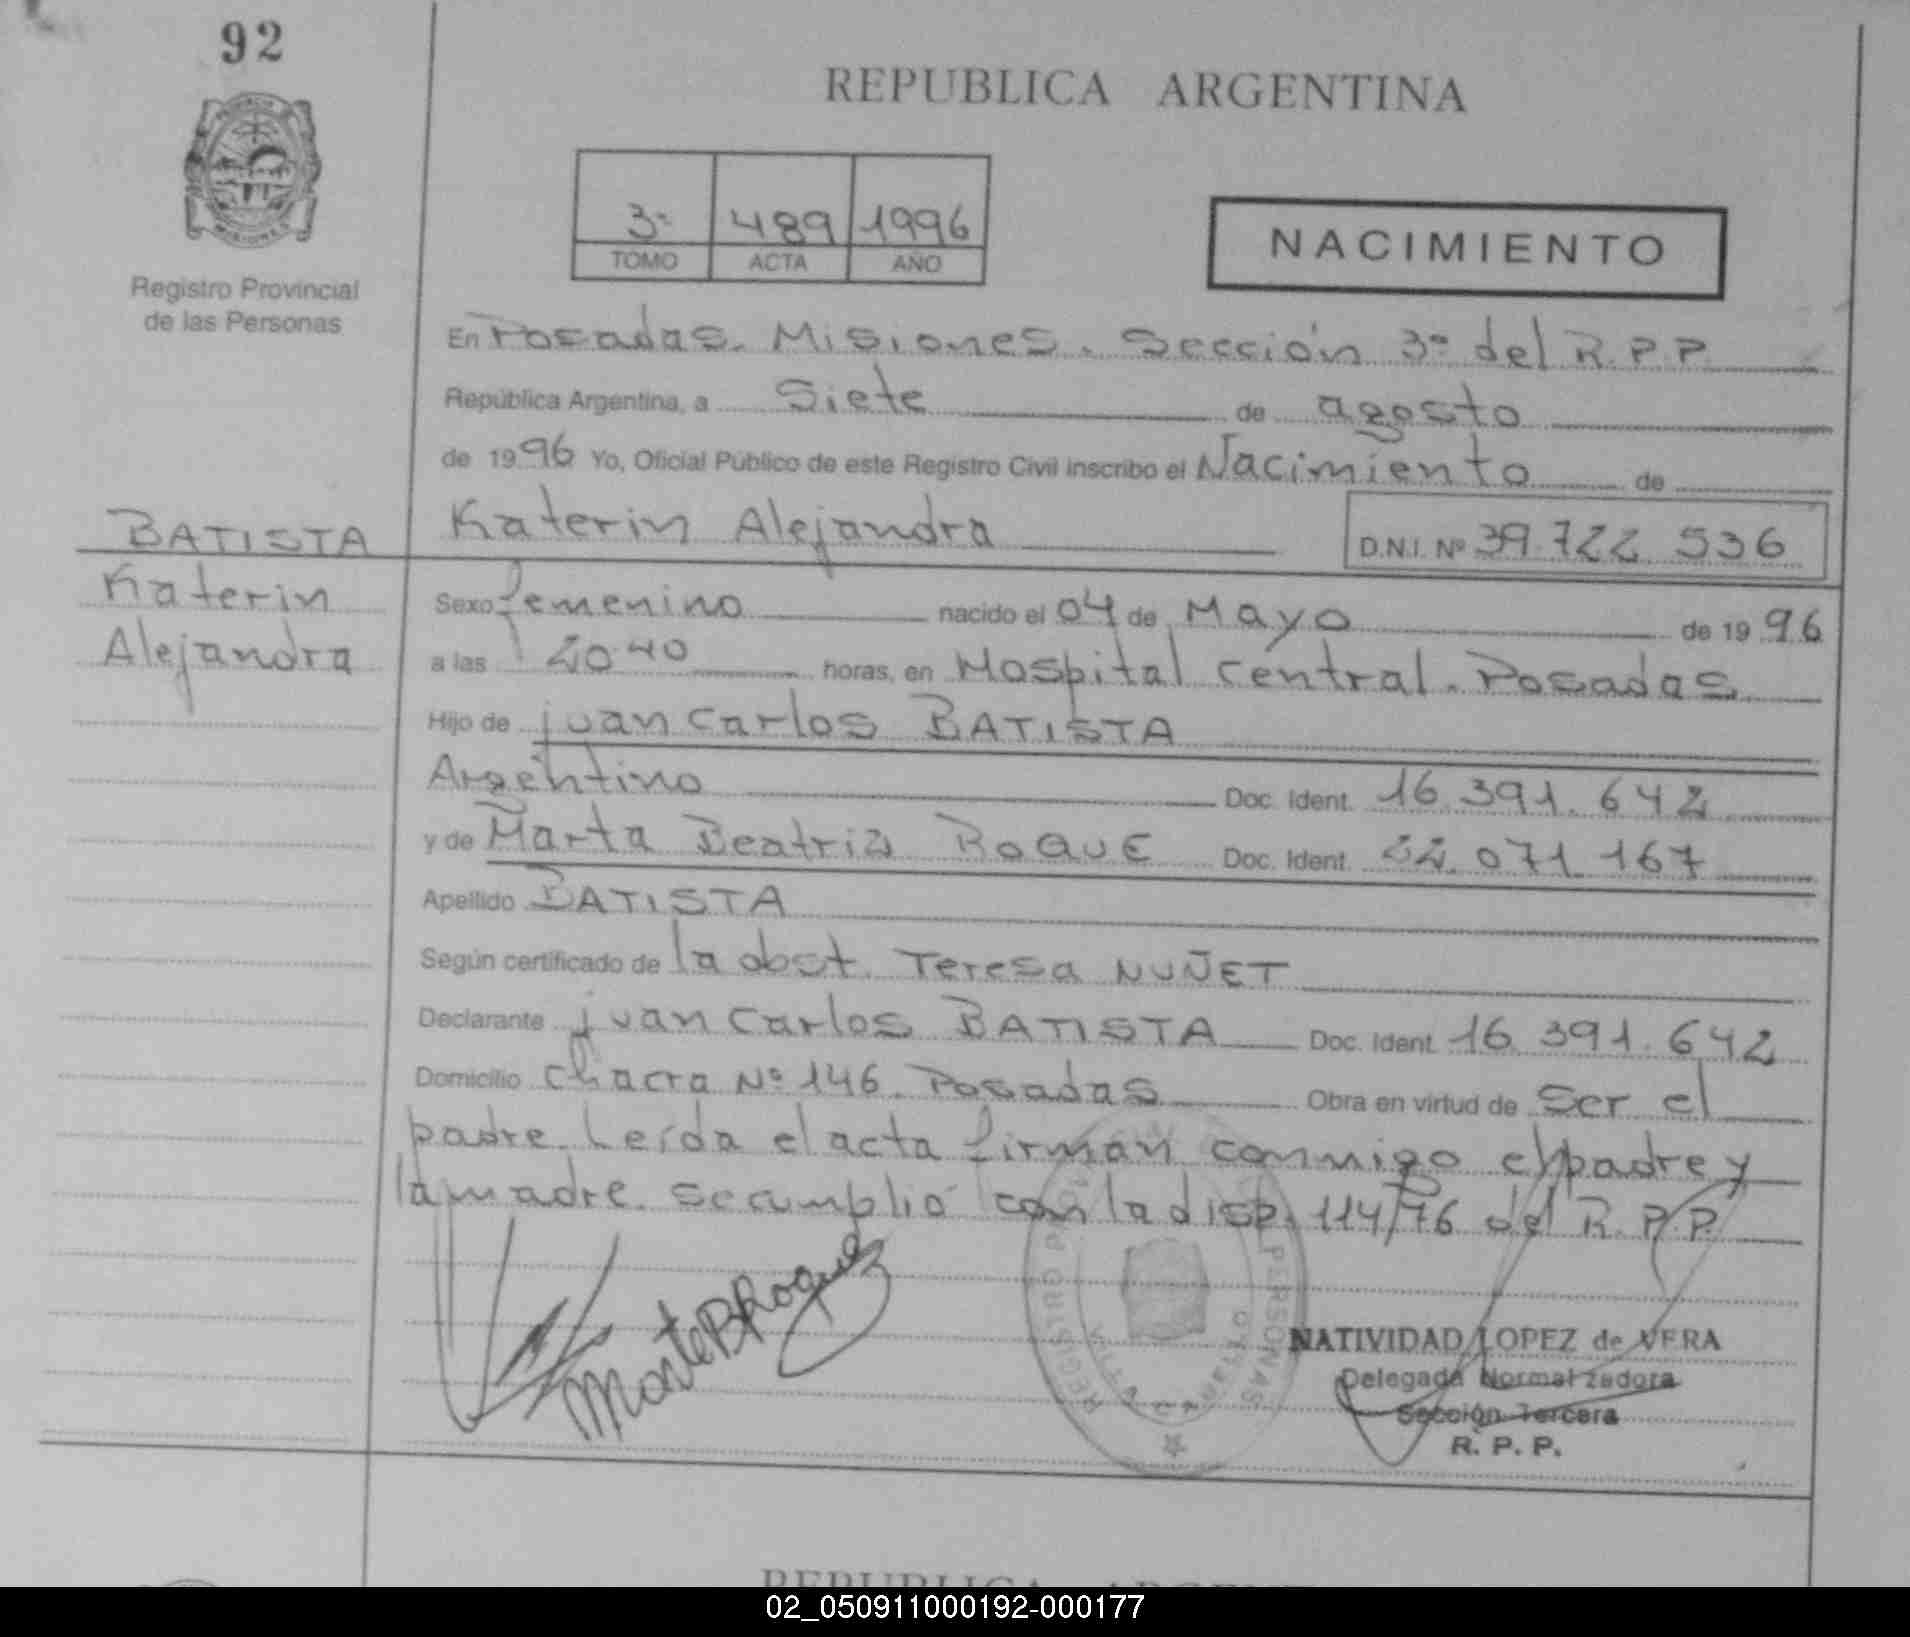 92
REPUBLICA ARGENTINA
3º 489 1996
TOMO ACTA AÑO
NACIMIENTO
MISIONES
Registro Provincial
de las Personas
En Posadas. Misiones. Sección 3º del R.P.P.
República Argentina, a Siete de agosto
de 1996 Yo, Oficial Público de este Registro Civil inscribo el Nacimiento de
BATISTA Katerin Alejandra D.N.I. Nº 39.722.536
Katerin
Alejandra
Sexo femenino nacido el 04 de Mayo de 1996
a las 20.40 horas, en Hospital Central. Posadas
Hijo de juan carlos BATISTA
Argentino Doc. Ident. 16.391.642
y de Marta Beatriz ROQUE Doc. Ident. 22.071.167
Apellido BATISTA
Según certificado de la obst. Teresa NUÑET
Declarante juan carlos BATISTA Doc. Ident. 16.391.642
Domicilio chacra Nº 146. Posadas Obra en virtud de ser el
padre. Leída el acta firman conmigo el padre y
la madre. se cumplió con la disp. 114/76 del R.P.P.
Marta B Roque
REGISTRO PERSONAS
NATIVIDAD LOPEZ de VERA
Delegada Normalizadora
Sección Tercera
R. P. P.
REPUBLICA
02_050911000192-000177